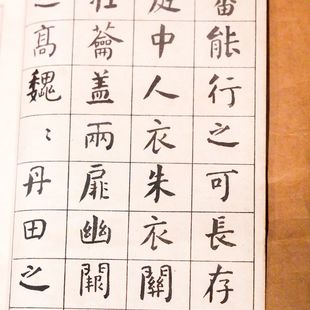 審能行之可長存
庭中人衣朱衣關
壯蘥蓋兩扉幽闕
之髙魏〻丹田之